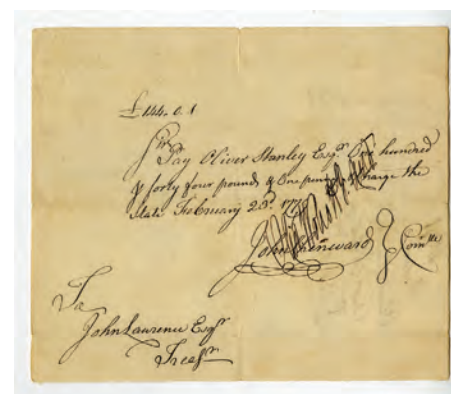 £144. 0. 1
Sir
Pay Oliver Stanley Esqr. One hundred
& forty four pounds & One penny & Charge the
State February 23d. 177
John Chenward } Comtte
To
John Lawrence Esqr
Treasr